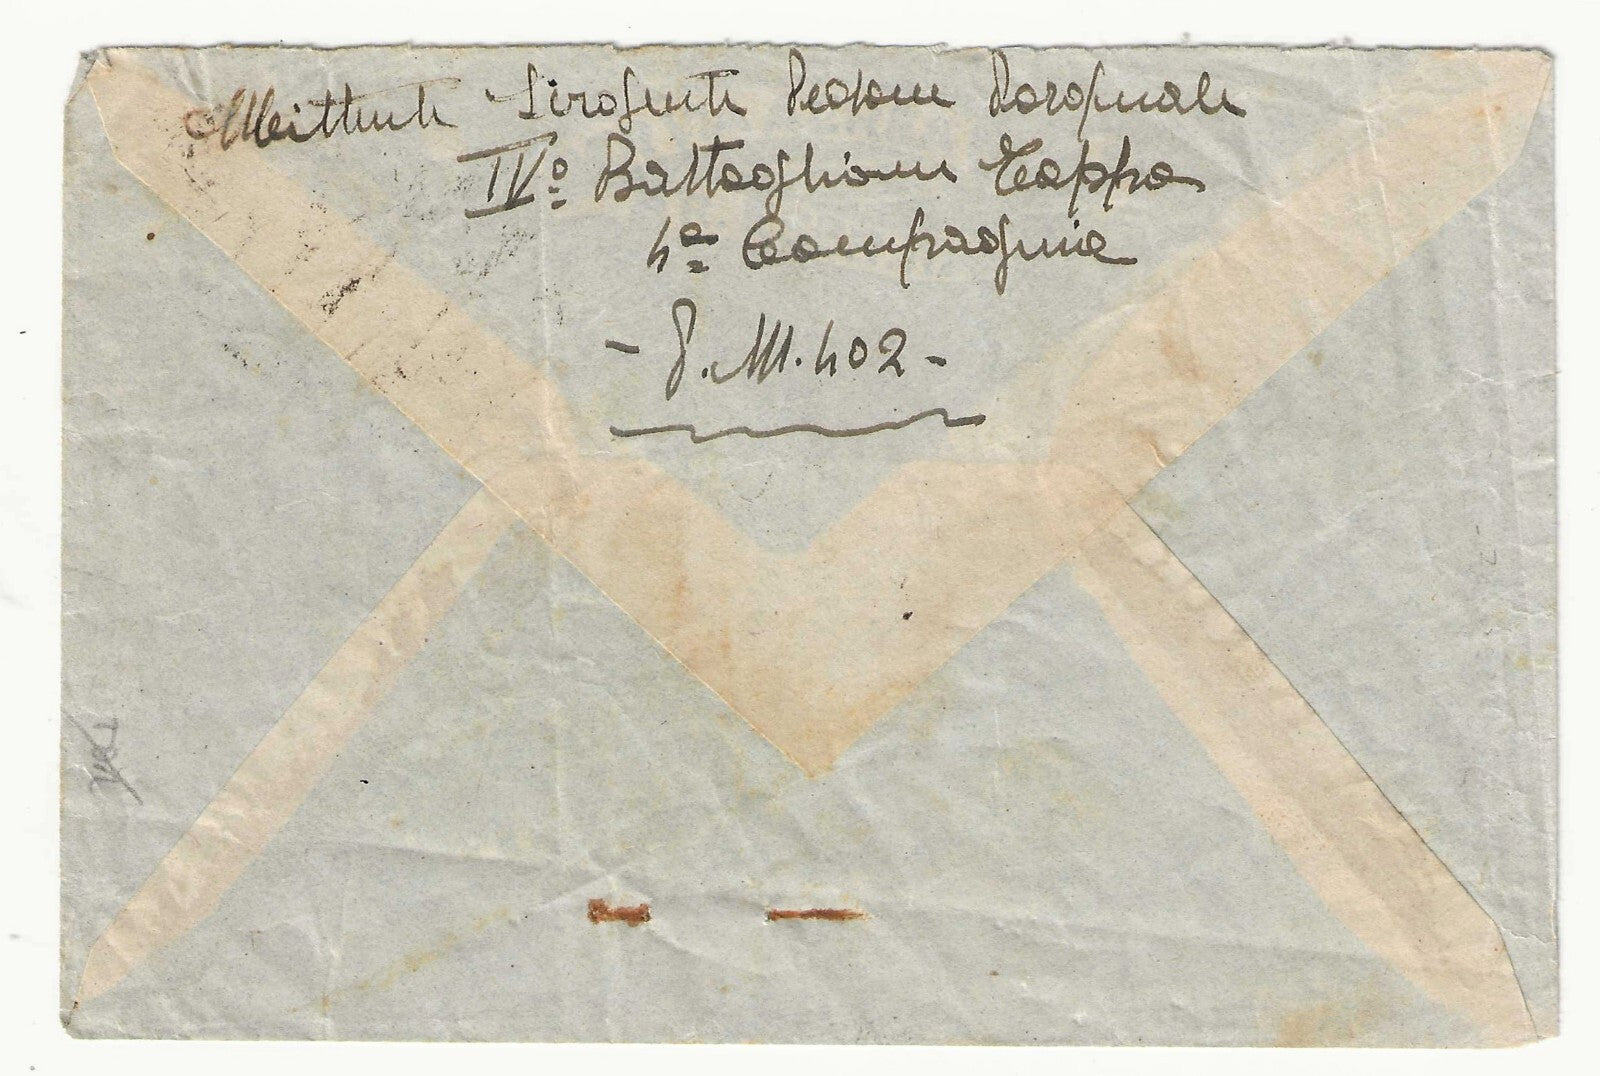 Mittente Sirogente Pedone Pasquale
IVº Battaglione Tappa
4ª Compagnia
- P.M. 402 -